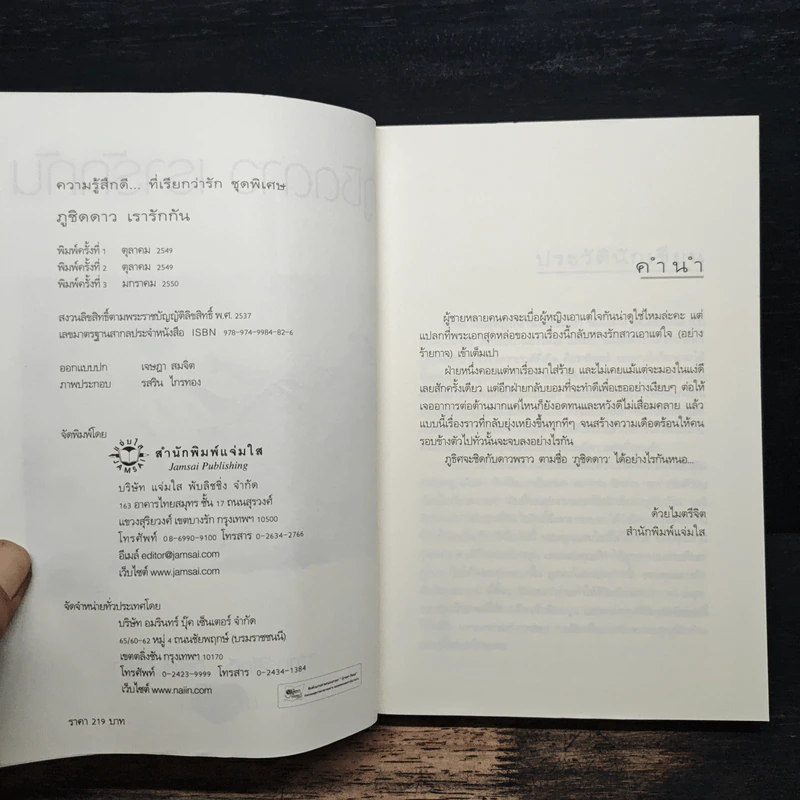 ความรู้สึกดี... ที่เรียกว่ารัก ชุดพิเศษ
ภูชิดดาว เรารักกัน
พิมพ์ครั้งที่ 1 ตุลาคม 2549
พิมพ์ครั้งที่ 2 ตุลาคม 2549
พิมพ์ครั้งที่ 3 มกราคม 2550
สงวนลิขสิทธิ์ตามพระราชบัญญัติลิขสิทธิ์ พ.ศ. 2537
เลขมาตรฐานสากลประจำหนังสือ ISBN 978-974-9984-82-6
ออกแบบปก เจษฎา สมจิต
ภาพประกอบ รสริน ไกรทอง
จัดพิมพ์โดย
สำนักพิมพ์แจ่มใส
Jamsai Publishing
บริษัท แจ่มใส พับลิชชิ่ง จำกัด
163 อาคารไทยสมุทร ชั้น 17 ถนนสุรวงศ์
แขวงสุริยวงศ์ เขตบางรัก กรุงเทพฯ 10500
โทรศัพท์ 08-6990-9100 โทรสาร 0-2634-2766
อีเมล์ editor@jamsai.com
เว็บไซต์ www.jamsai.com
จัดจำหน่ายทั่วประเทศโดย
บริษัท อมรินทร์ บุ๊ค เซ็นเตอร์ จำกัด
65/60-62 หมู่ 4 ถนนชัยพฤกษ์ (บรมราชชนนี)
เขตตลิ่งชัน กรุงเทพฯ 10170
โทรศัพท์ 0-2423-9999 โทรสาร 0-2434-1384
เว็บไซต์ www.naiin.com
ราคา 219 บาท
คำนำ
ผู้ชายหลายคนคงจะเบื่อผู้หญิงเอาแต่ใจกันน่าดูใช่ไหมล่ะคะ แต่
แปลกที่พระเอกสุดหล่อของเราเรื่องนี้กลับหลงรักสาวเอาแต่ใจ (อย่าง
ร้ายกาจ) เข้าเต็มเปา
ฝ่ายหนึ่งคอยแต่หาเรื่องมาใส่ร้าย และไม่เคยแม้แต่จะมองในแง่ดี
เลยสักครั้งเดียว แต่อีกฝ่ายกลับยอมที่จะทำดีเพื่อเธออย่างเงียบๆ ต่อให้
เจออาการต่อต้านมากแค่ไหนก็ยังอดทนและหวังดีไม่เสื่อมคลาย แล้ว
แบบนี้เรื่องราวที่กลับยุ่งเหยิงขึ้นทุกทีๆ จนสร้างความเดือดร้อนให้คน
รอบข้างตัวไปทั่วนั้นจะจบลงอย่างไรกัน
ภูธิศจะชิดกับดาวพราว ตามชื่อ 'ภูชิดดาว' ได้อย่างไรกันหนอ...
ด้วยไมตรีจิต
สำนักพิมพ์แจ่มใส